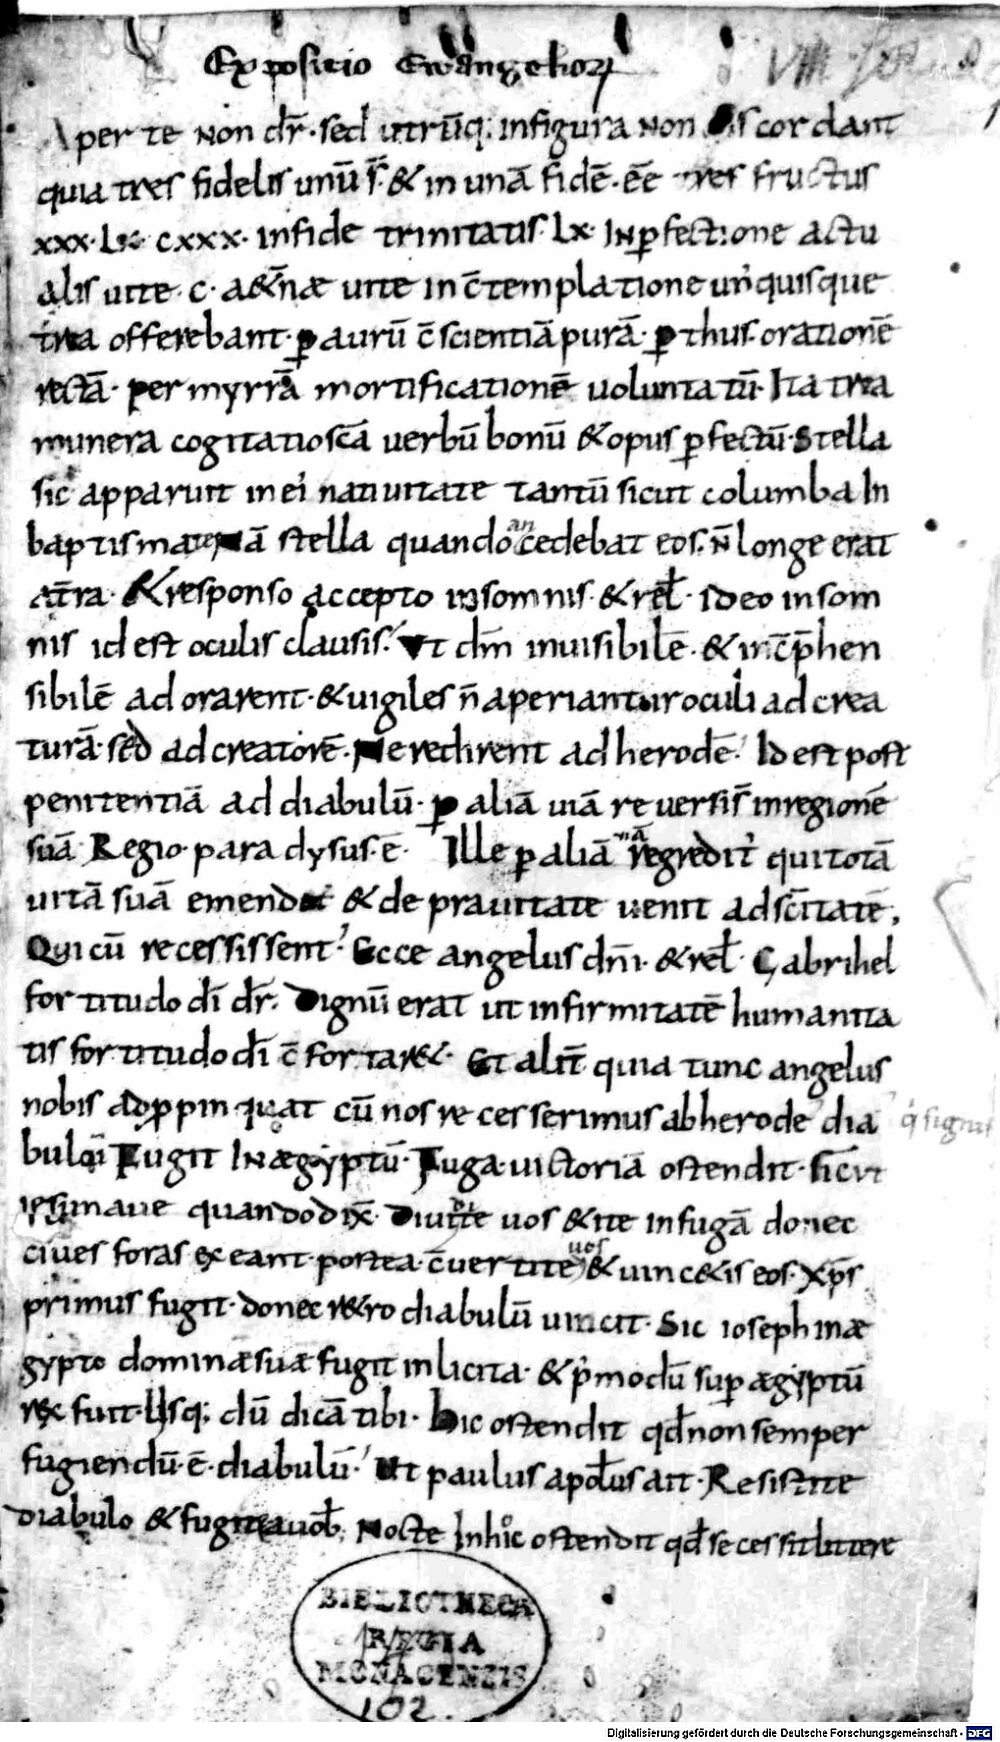 Expositio Ewangeliorꝝ
Aperte non dr̄. sed utrūq; in figura non discordant
quia tres fidelis unū s̄. & in unā fidē. eē tres fructus
xxx. Lx cxxx. in fide trinitatis. Lx. IN ꝑfectione actu
alis uite. c. a&̄næ uite in c̄templatione un'quisque
tria offerebant. ꝑ aurū c̄scientiā purā. ꝑ thus. orationē
rectā. per myrrā mortificationē uoluntatū. Ita tria
munera cogitatio sc̄a uerbū bonū & opus ꝑfectū. Stella
sic apparuit in ei' natiuitate tantū sicut columba In
baptismate stella quando antcedebat eos. n̄ longe erat
a t̄ra. & responso accepto in somnis. & rel̄. Ideo in som
nis id est oculis clausis. Ut dm̄ inuisibilē. & inc̄p̄hen
sibilē adorarent. & uigiles n̄ aperiantur oculi ad crea
turā. sed ad creatorē. Ne redirent ad herodē. Id est post
penitentiā ad diabulū. ꝑ aliā uiā reuersi s̄ in regionē
suā. Regio. paradysus. ē. Ille ꝑ aliā uiā regredit' qui totā
uitā suā emendat & de prauitate uenit ad sc̄itatē.
Qui cū recessissent. Ecce angelus dn̄i. & rel̄. Gabrihel
fortitudo dī dr̄. Dignū erat ut infirmitatē humanita
tis fortitudo dī c̄fortar&. Et alit̄ quia tunc angelus
nobis adpropinquat cū nos recesserimus ab herode dia
bulo Fugit IN ægyptū. Fuga uictoriā ostendit. sicut
iesu naue quando dix̄. Diuertite uos & ite in fugā donec
ciues foras exeant. postea c̄uertite uos & uinc&is eos. Xp̄s
primus fugit. donec r&ro diabulū uincit. Sic ioseph in æ
gypto dominæ suæ fugit inlicita. & p'modū suꝑ ægyptū
rex fuit. Usq; dū dicā tibi. hic ostendit qd̄ non semper
fugiendū. ē. diabulū. Ut paulus apostl̄us ait. Resistite
diabulo & fugiet a uob̄. Nocte In hoc ostendit qd̄ secessit
BIBLIOTHECA
REGIA
MONACENSIS
102.
Digitalisierung gefördert durch die Deutsche Forschungsgemeinschaft - DFG